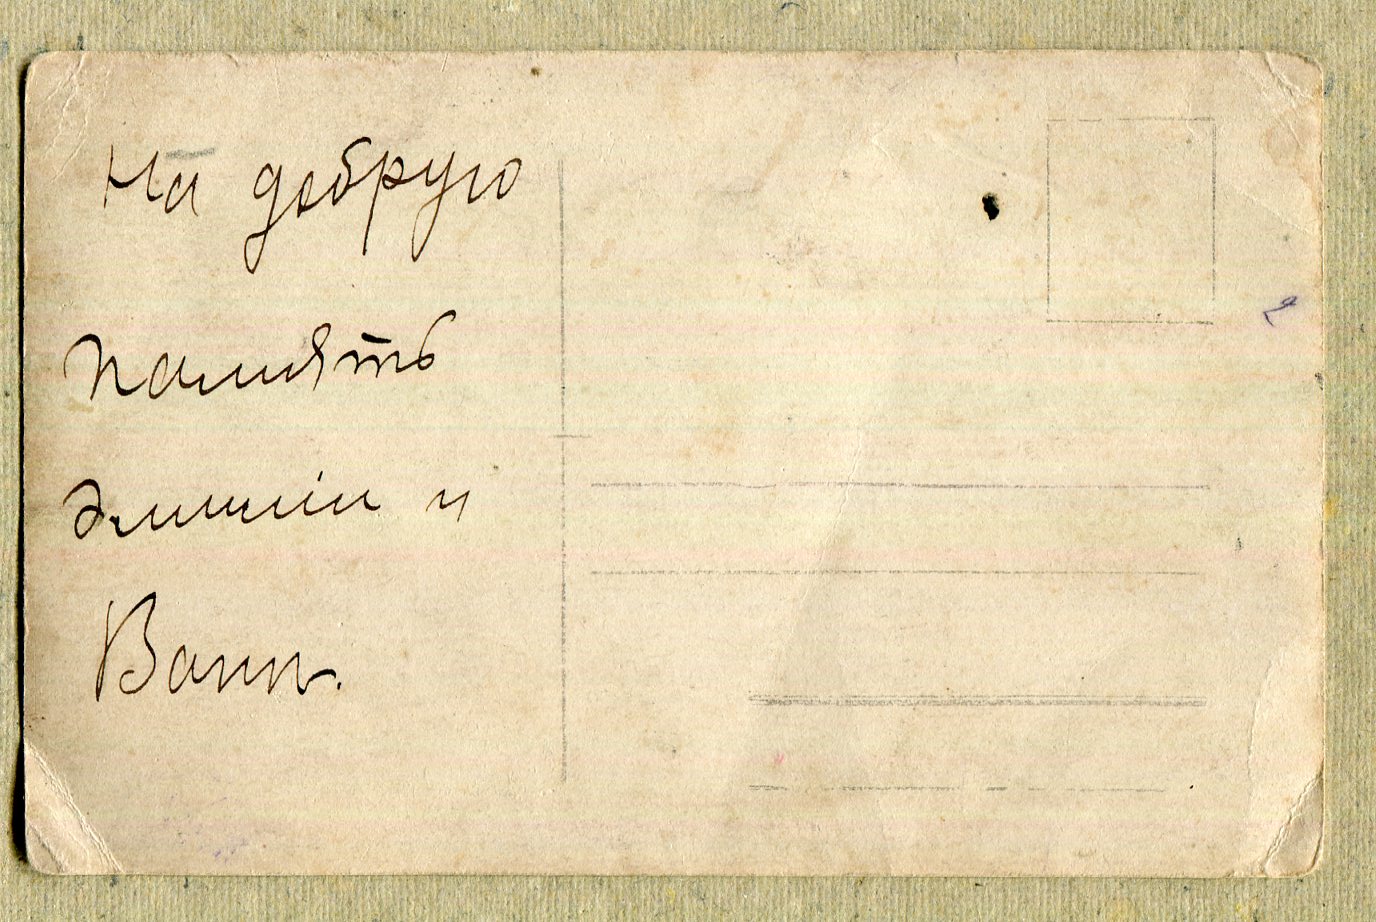 На добрую
память
Эмиліи и
Вани.